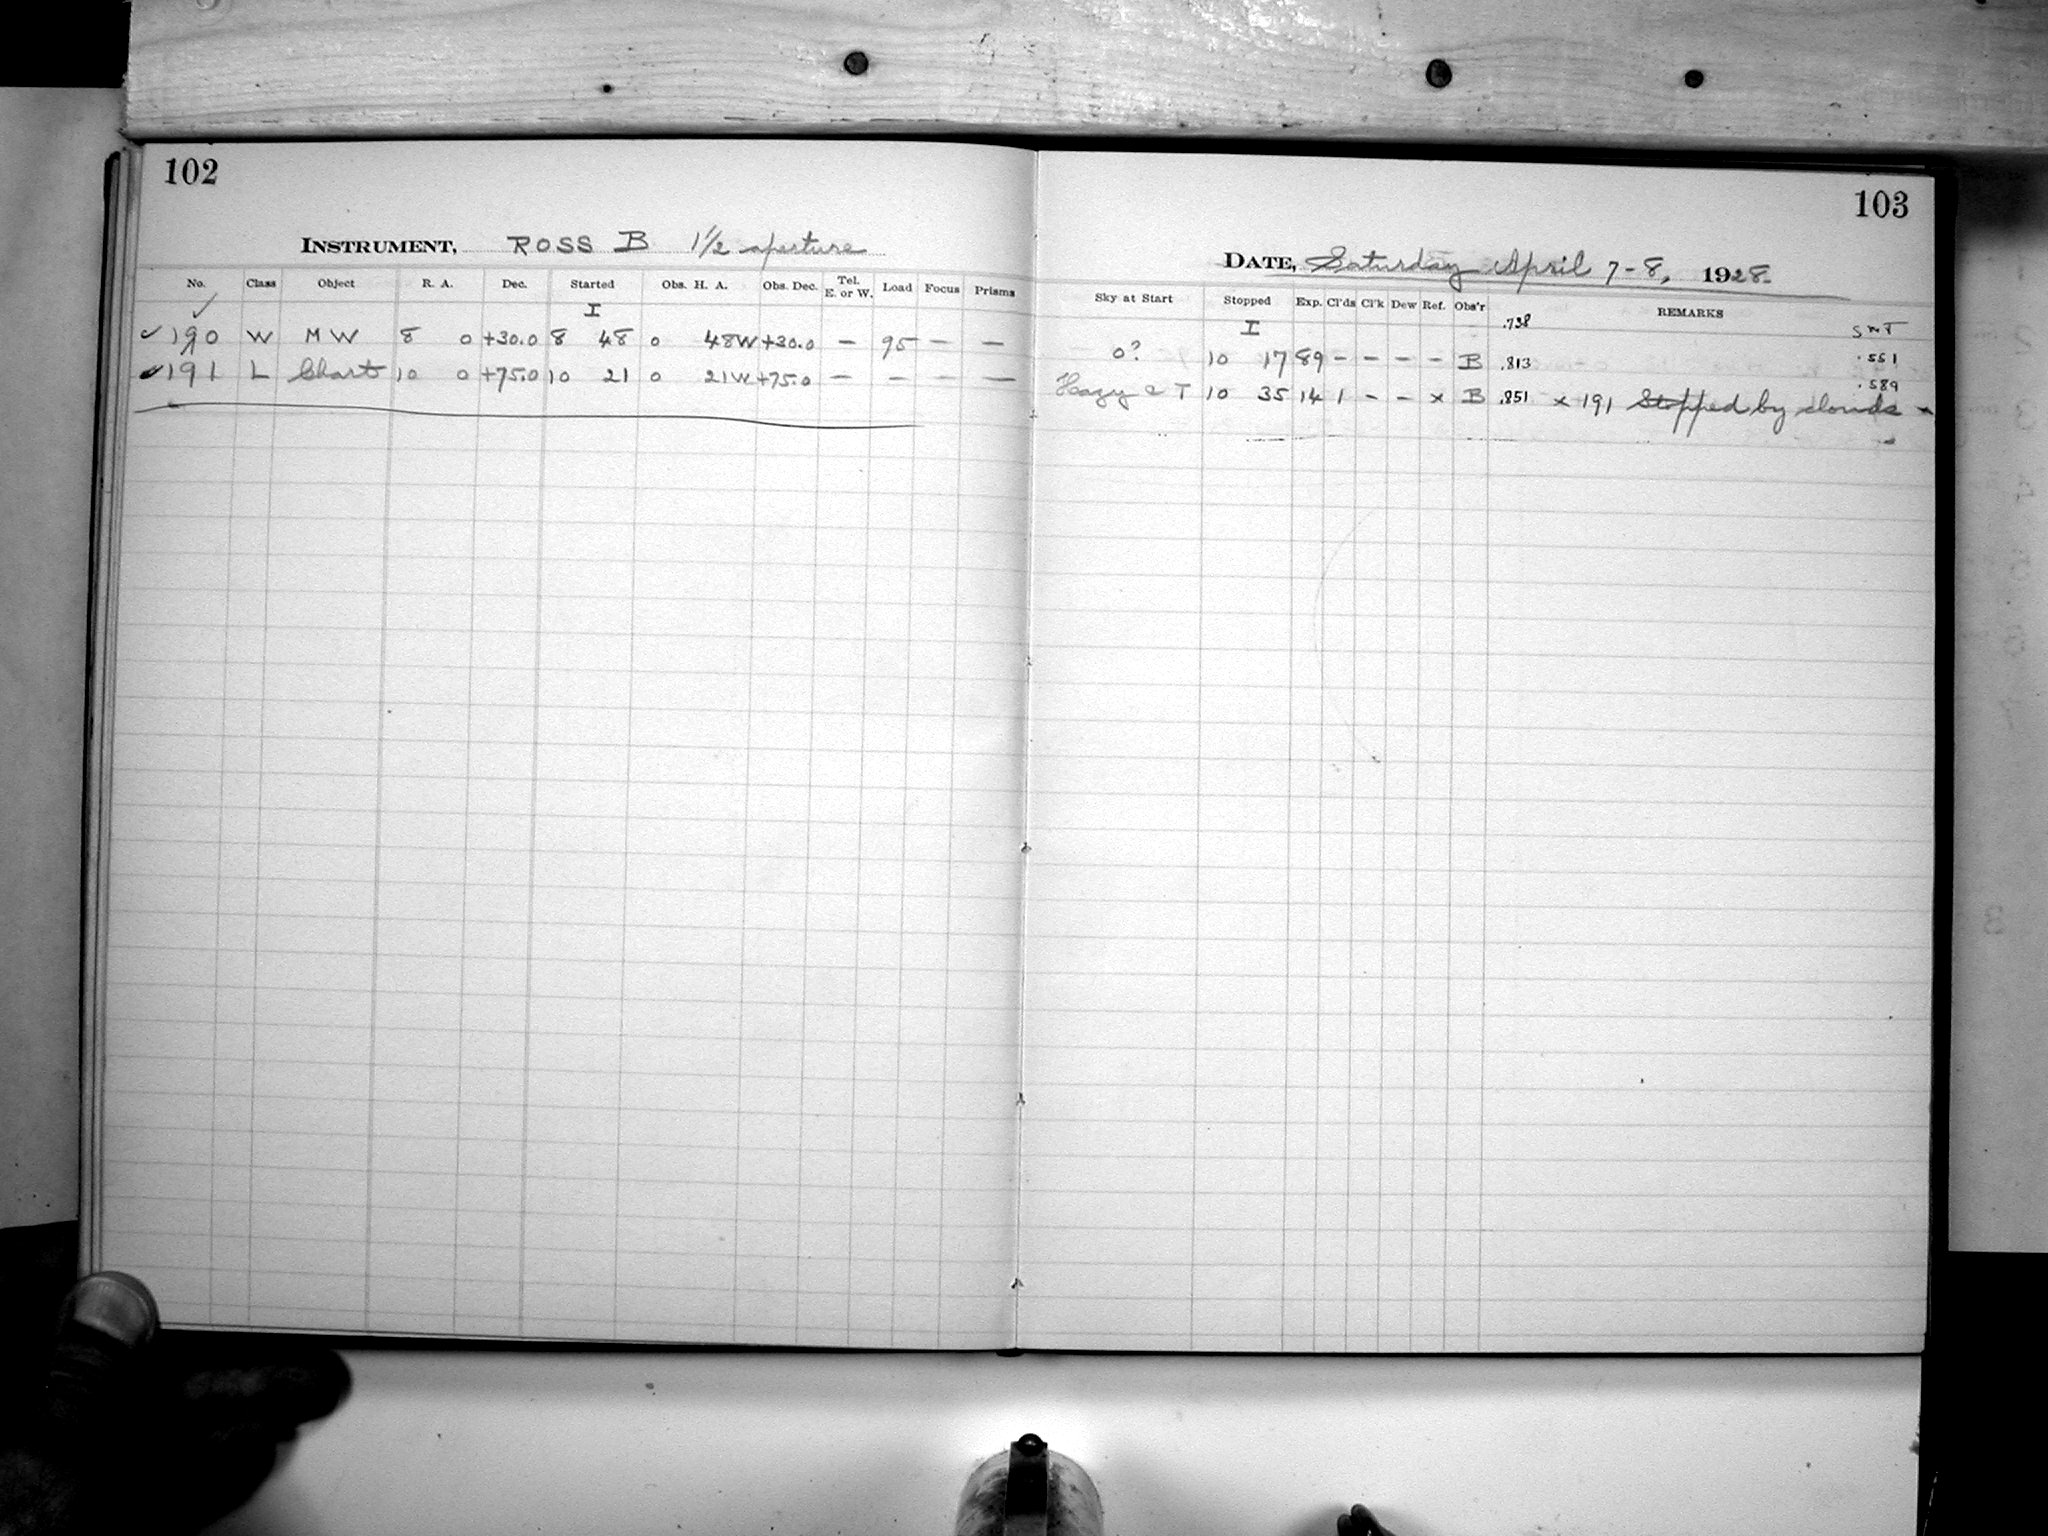 102
INSTRUMENT, ROSS B 1 1/2 aperture
No. Class Object R. A. Dec. Started Obs. H. A. Obs. Dec. Tel. E. or W. Load Focus Prisms
✓ I
✓ 190 W MW 8 0 +30.0 8 48 0 48W +30.0 — 95 — —
✓ 191 L Chart 10 0 +75.0 10 21 0 21W +75.0 — — — —
103
DATE, Saturday April 7-8, 1928.
Sky at Start Stopped Exp. Cl'ds Cl'k Dew Ref. Obs'r REMARKS
I .738 SMT
0? 10 17 89 – – – – B .813 .551
Hazy T 10 35 14 1 – – x B .851 x 191 Stopped by clouds .589